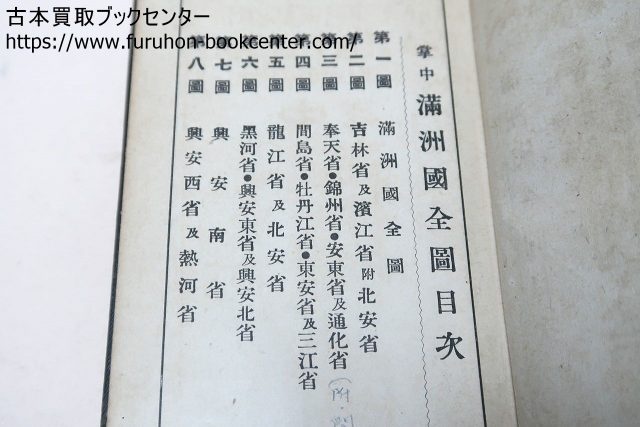 古本買取ブックセンター
https://www.furuhon-bookcenter.com/
掌中 滿洲國全圖目次
第一圖 滿洲國全圖
第二圖 吉林省及濱江省附北安省
第三圖 奉天省●錦州省●安東省及通化省(附·
第四圖 間島省●牡丹江省●東安省及三江省
第五圖 龍江省及北安省
第六圖 黑河省●興安東省及興安北省
第七圖 興安南省
第八圖 興安西省及熱河省